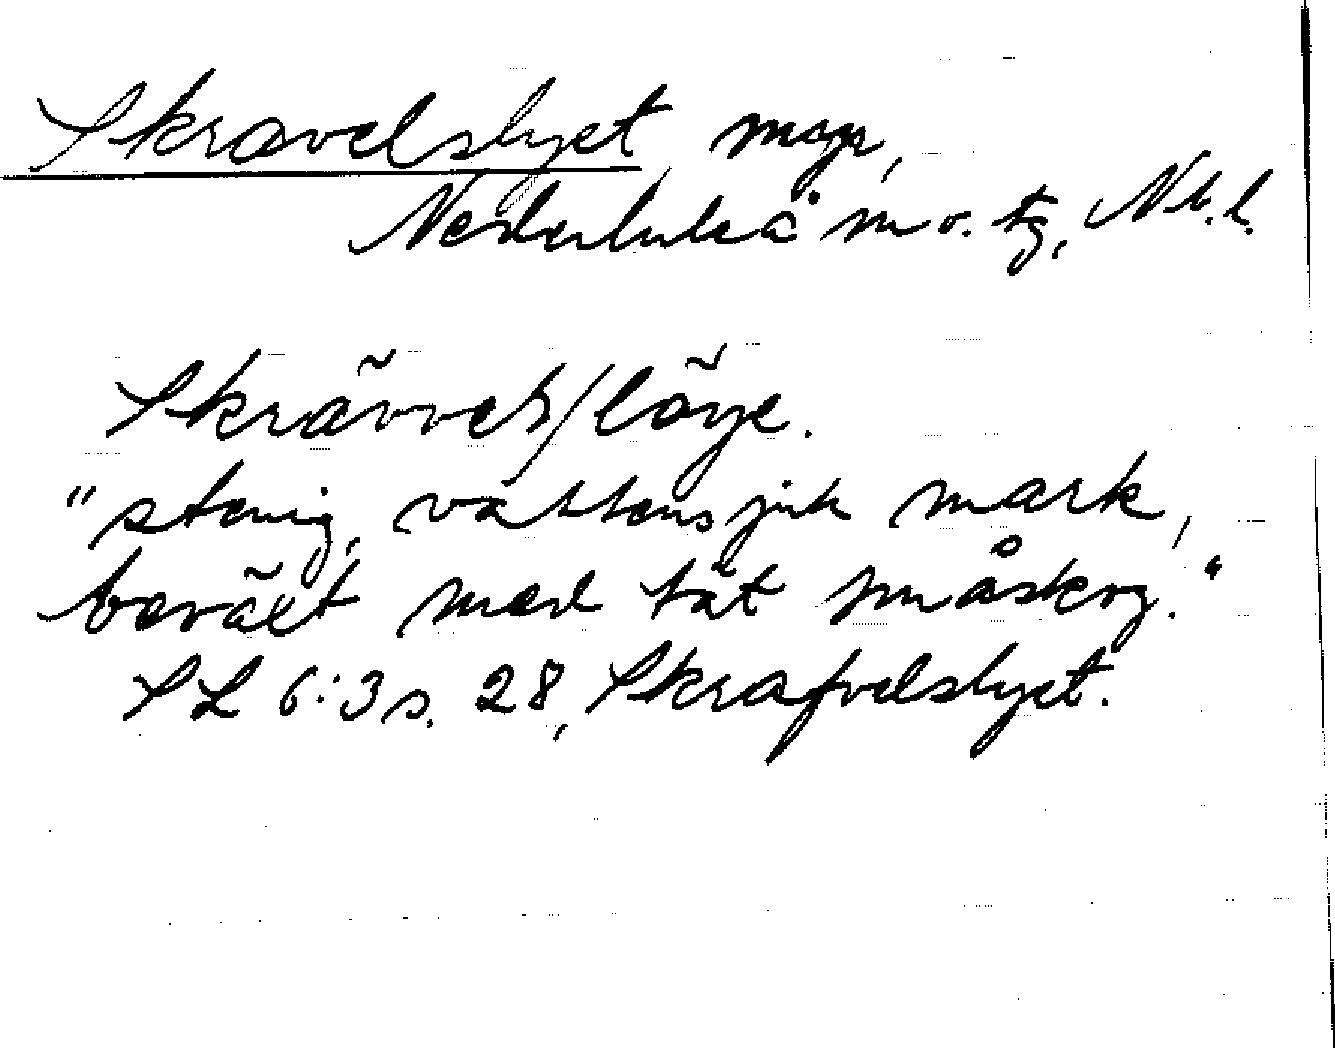 Skravelslyet myr,
Nederluleå sn o. tg, Nb. l.
Skrävvels/löye.
"stenig, vattensjuk mark,
beväxt med tät småskog."
SL 6:3 s. 28, Skrafvelslyet.